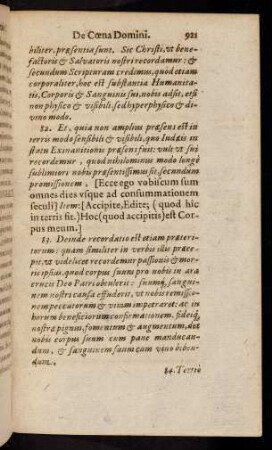 De Cœna Domini. 921
biliter, præsentia sunt. Sic Christi, vt bene-
factoris & Salvatoris nostri recordamur: &
secundum Scripturam credimus, quod etiam
corporaliter, hoc est substantia Humanita-
tis, Corporis & Sanguinis sui, nobis adsit, etsi
non physico & visibili, sed hyperphysico & di-
vino modo.
82. Et, quia non amplius præsens est in
terris modo sensibili & visibili, quo Iudæis in
statu Exinanitionis præsens fuit: vult vt sui
recordemur, quod nihilominus modo longè
sublimiore nobis præsentissimus sit, secundum
promissionem, [Ecce ego vobiscum sum
omnes dies vsque ad consummationem
seculi] Item: [Accipite, Edite; (quod hîc
in terris fit.) Hoc (quod accipitis) est Cor-
pus meum.]
83. Deinde recordatio est etiam præteri-
torum; quam similiter in verbis illis præce-
pit, vt videlicet recordemur passionis & mor-
tis ipsius, quod corpus suum pro nobis in ara
crucis Deo Patri obtulerit: suumq; sangui-
nem nostri causa effuderit, vt nobis remissio-
nem peccatorum & vitam impetraret: ac in
horum beneficiorum confirmationem, fideiq;
nostræ pignus, fomentum & augmentum, det
nobis corpus suum cum pane manducan-
dum, & sanguinem suum cum vino biben-
dum.
84. Tertiò